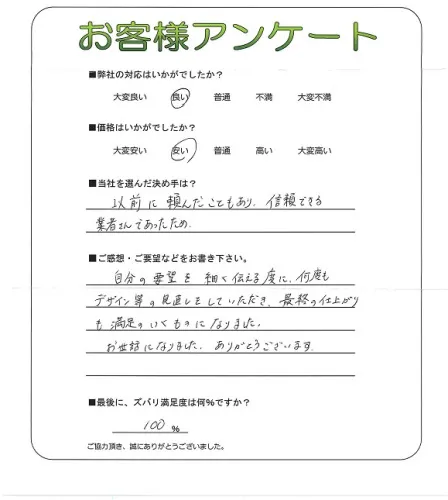 お客様アンケート
■弊社の対応はいかがでしたか？
大変良い　良い　普通　不満　大変不満
■価格はいかがでしたか？
大変安い　安い　普通　高い　大変高い
■当社を選んだ決め手は？
以前に頼んだこともあり、信頼できる
業者さんであったため.
■ご感想・ご要望などをお書き下さい。
自分の要望を細く伝える度に、何度も
デザイン等の見直しをしていただき、最終の仕上がり
も満足のいくものになりました。
お世話になりました。ありがとうございます.
■最後に、ズバリ満足度は何％ですか？
100 %
ご協力頂き、誠にありがとうございました。